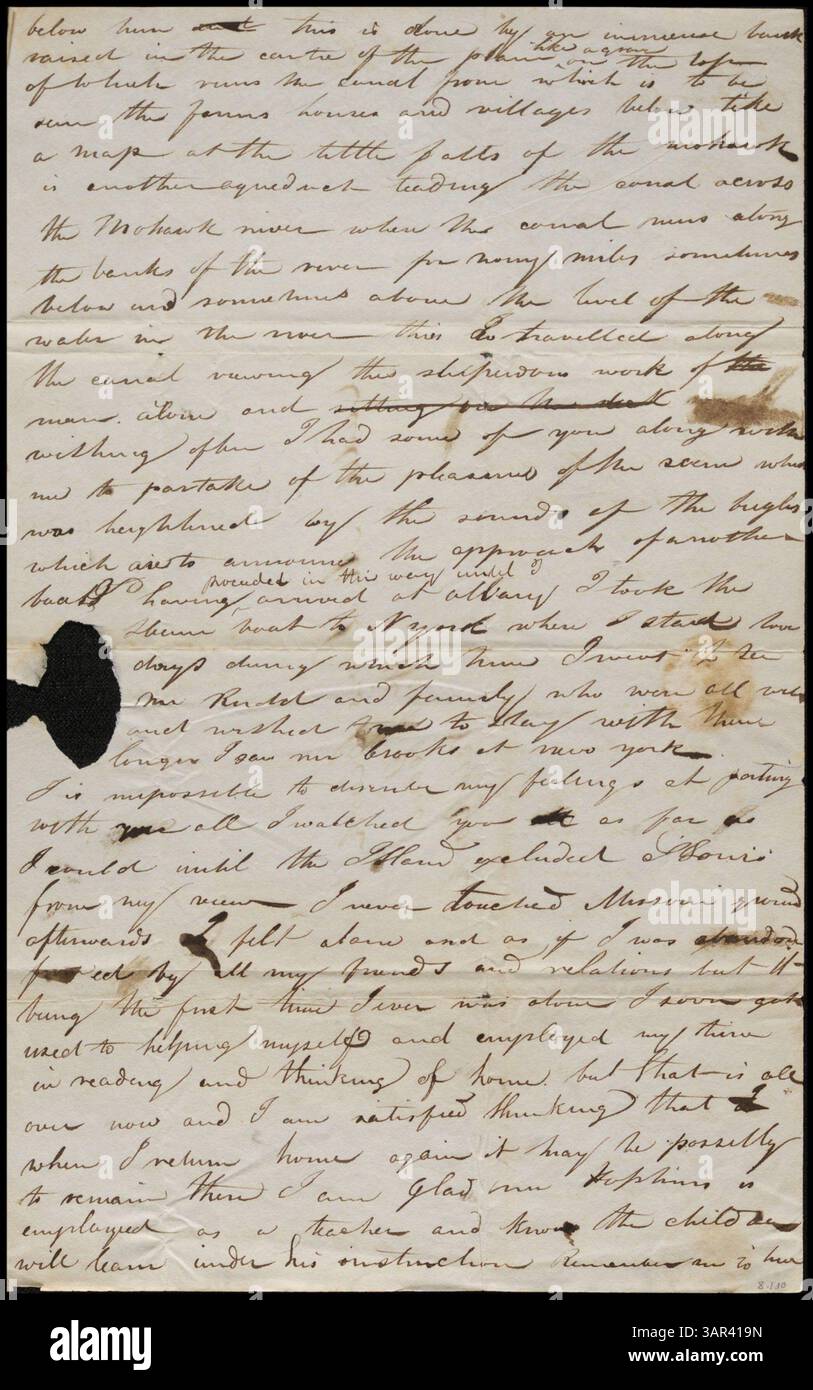 below him this is done by an immense bank
raised in the centre of the plain like a grave on the top
of which runs the canal from which is to be
seen the farms houses and villages below like
a map at the little falls of the mohawk
is another aqueduct leading the canal across
the Mohawk river when the canal runs along
the banks of the river for many miles sometimes
below and sometimes above the level of the
water in the river this I travelled along
the canal viewing the stuperdous work of the
man alone and setting on the deck
wishing often I had some of you along with
me to partake of the pleasures of the scene which
was heightened by the sounds of the bugles
which are to announce the approach of another
boat having proceeded in this way until I arrived at albany I took the
steam boat to N york where I staid two
days during which time I went to see
mr Rudd and family who were all well
and wished me to stay with them
longer I saw mr brooks at new york
I is impossible to discribe my feelings at parting
with you all I watched you as far as
I could until the Island excluded St Louis
from my view I never touched Missouri ground
afterwards I felt alone and as if I was
by all my friends and relations but it
being the first time I ever was alone I soon got
used to helping myself and employed my time
in reading and thinking of home but that is all
over now and I am satisfied thinking that
when I return home again it may be possilly
to remain there I am Glad mr Hopkins is
employed as a teacher and know the children
will learn under his instruction Remember me to him
8-1.10
alamy
Image ID: 2AR419N
www.alamy.com